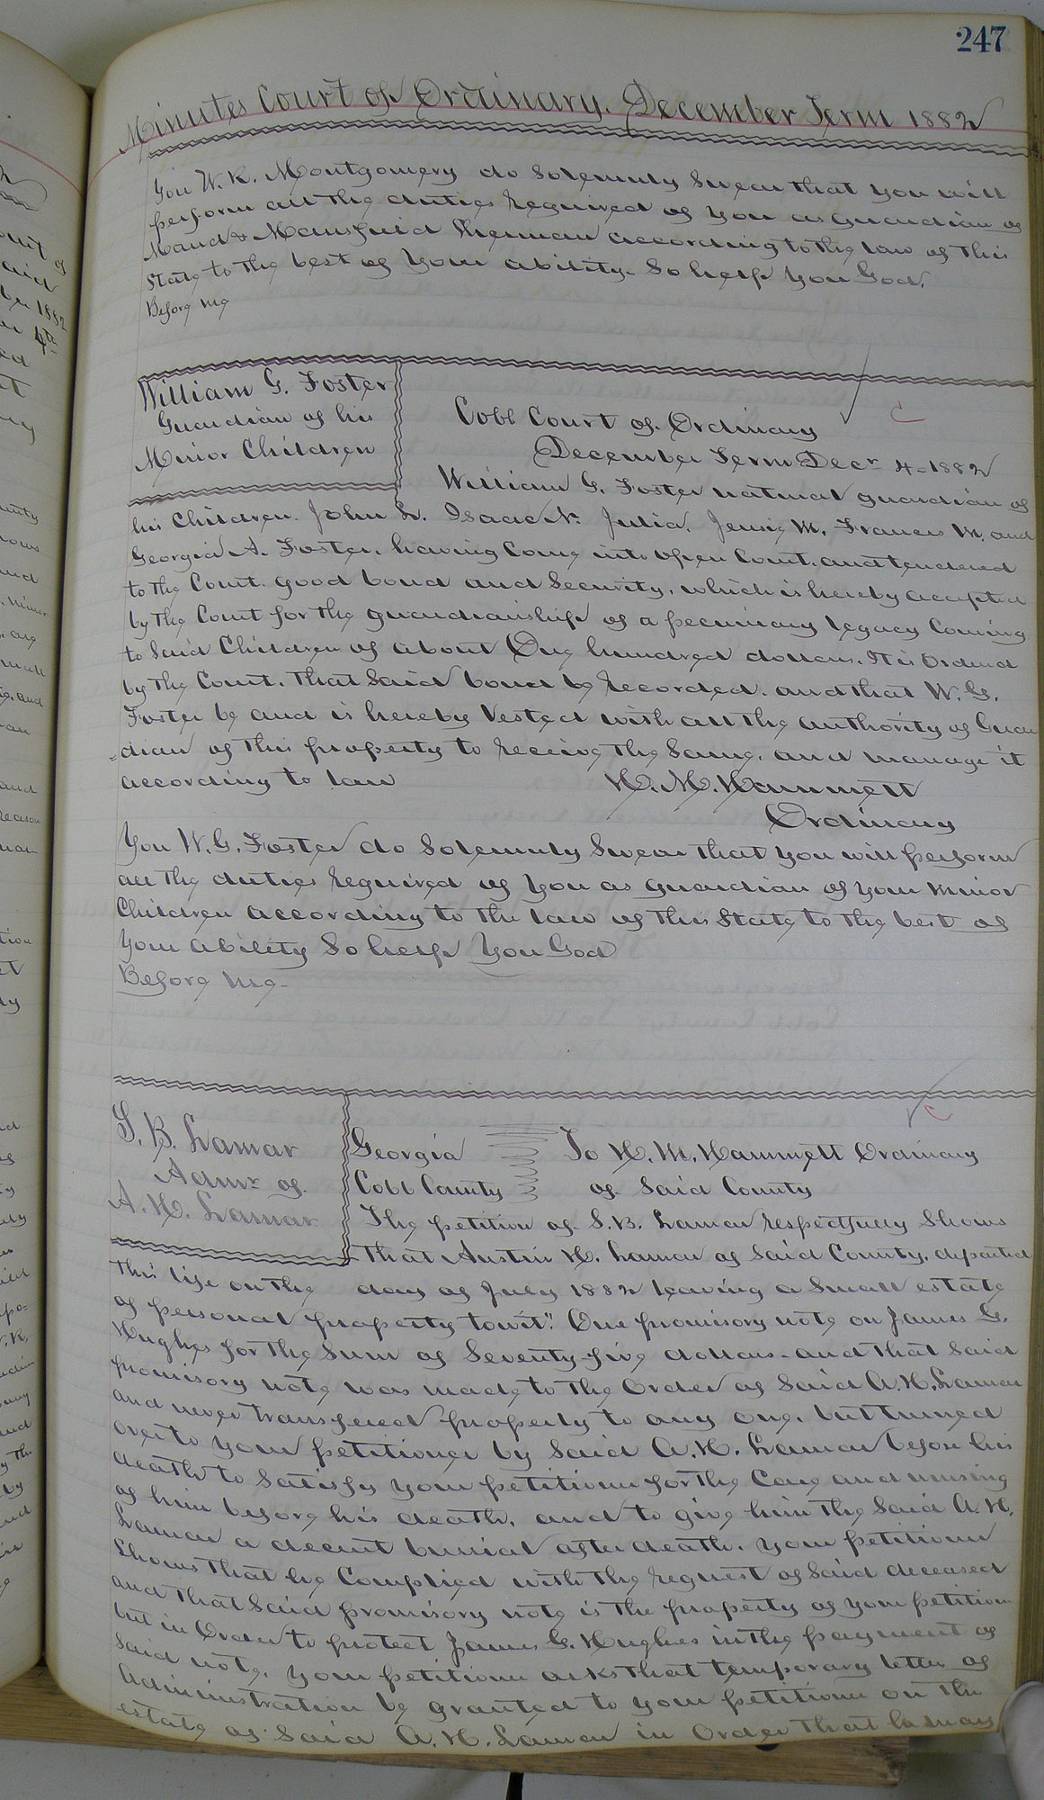 247
Minutes Court of Ordinary. December Term 1882
You W. R. Montgomery do Solemnly Swear that you will
perform all the duties required of you as Guardian of
Maud & Mansfield Sherman according to the law of this
State to the best of your ability. So help you God.
Before me
William G. Foster
Guardian of his
Minor Children
Cobb Court of Ordinary
December Term Decr 4-1882
William G. Foster natural guardian of
his Children. John L. Isaac N. Julia. Jennie M. Frances M. and
Georgia A. Foster, having Come into open Court, and tendered
to the Court. good bond and Security, which is hereby accepted
by the Court for the guardianship of a pecuniary legacy Coming
to Said Children of about One hundred dollars. It is Ordered
by the Court. that Said bond be recorded. and that W. G.
Foster be and is hereby Vested with all the authority of Guar
=dian of this property to receive the Same, and manage it
according to law
H. M. Hammett
Ordinary
You W. G. Foster do Solemnly Swear that you will perform
all the duties required of you as guardian of your minor
Children according to the law of this State to the best of
your ability So help you God
Before me-
S. B. Lamar
Admr of.
A. H. Lamar
Georgia
Cobb County
To H. M. Hammett Ordinary
of Said County
The petition of S. B. Lamar respectfully Shows
that Austin H. Lamar of Said County, departed
this life on the day of July 1882 leaving a Small estate
of personal property towit". One promisory note on James G.
Hughes for the Sum of Seventy-five dollars-and that Said
promisory note was made to the Order of Said A. H. Lamar
and never transfered properly to any one. but turned
over to your petitioner by Said A. H. Lamar before his
death to Satisfy your petitioner for the Care and nursing
of him before his death, and to give him the Said A. H.
Lamar a decent burial after death. your petitioner
Shows that he Complied with the request of Said deceased
and that Said promisory note is the property of your petitioner
but in Order to protect James G. Hughes in the payment of
Said note, your petitioner asks that temporary letter of
Administration be granted to your petitioner on the
estate of Said A. H. Lamar in Order that he may